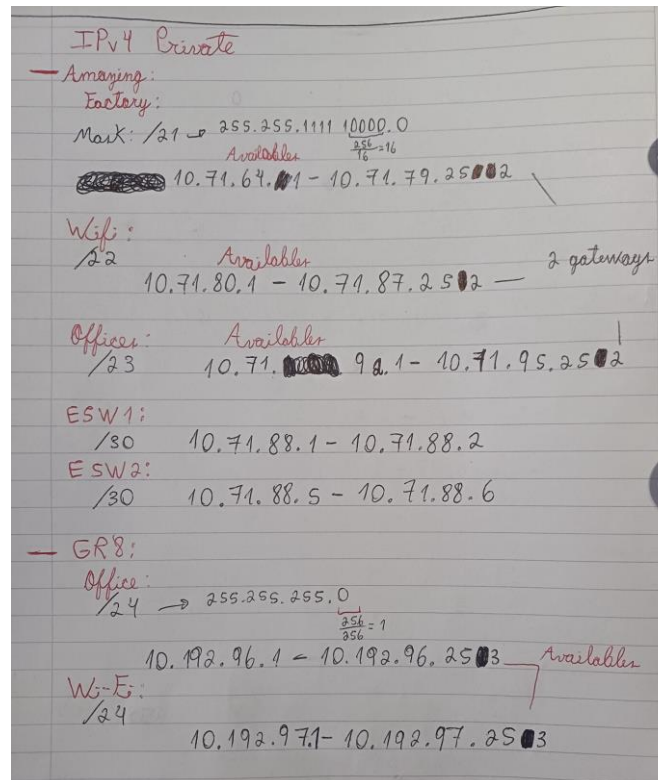 IPv4 Private
— Amazing:
Factory:
Mask: /21 → 255.255.1111 10000.0
256/16 = 16
Availables
10.71.64.1 - 10.71.79.252
Wifi:
/22 Availables 2 gateways
10.71.80.1 - 10.71.87.252 —
Offices: Availables
/23 10.71.92.1 - 10.71.95.252
ESW1:
/30 10.71.88.1 - 10.71.88.2
ESW2:
/30 10.71.88.5 - 10.71.88.6
— GR8:
Office:
/24 → 255.255.255.0
256/256 = 1
10.192.96.1 - 10.192.96.253 Availables
Wi-Fi:
/24
10.192.97.1 - 10.192.97.253